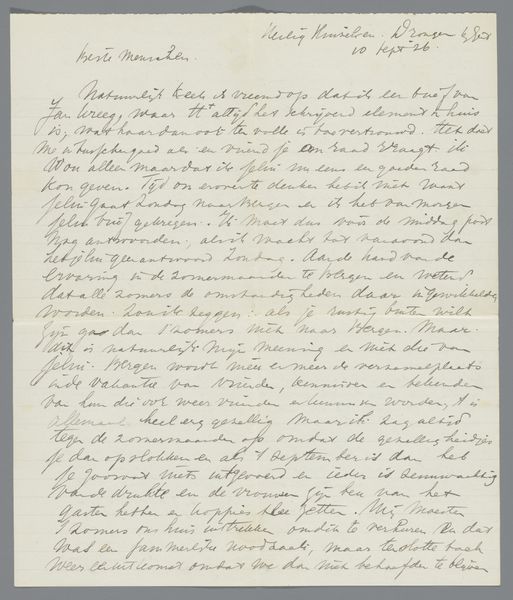 Heilig Huizeken. Drongen by Gent
10 Sept 26.
Beste Menschen.
Natuurlijk keek ik vreemd op dat ik een brief van
Jan kreeg, waar H altijd het schrijvend element in huis
is, wat haar dan ook ten volle is toevertrouwd. Het doet
me goed als en vriend je om raad vraagt. Ik
wou alleen maar dat ik jelui nu eens en goeden raad
kon geven. Tijd om erover te denken heb ik niet want
jelui gaat Zondag naar Bergen en ik heb van morgen
jelui brief gekregen. Ik moet dus vóór de middag post
nog antwoorden, als ik wacht tot vanavond dan
heb jelui geen antwoord Zondag. Aan de hand van de
ervaring in de zomermaanden te Bergen en wetend
dat alle zomers de omstandigheden daar ingewikkelder
worden. Zou ik zeggen: als je rustig buiten wilt
zijn ga dan 's zomers niet naar Bergen. Maar
dit is natuurlijk mijn meening en niet die van
jelui. Bergen wordt meer en meer de verzamelplaats
in de vakantie van vrienden, kennissen en bekenden
van hun die ook weer vrienden en kennissen worden, 't is
allemaal heel erg gezellig maar ik zag altijd
tegen de zomermaanden op omdat de gezelligheidjes
je dan opslokken en als 't September is dan heb
je zoowat niets uitgevoerd en ieder is zenuwachtig
van de drukte en de vrouwen zijn beu van het
gasten hebben en koppies thee zetten. Wij moesten
's zomers ons huis uittrekken om dit te verhuren en dat
was een noodzaak, maar ten slotte toch
weer omdat we dan niet behoefden te blijven